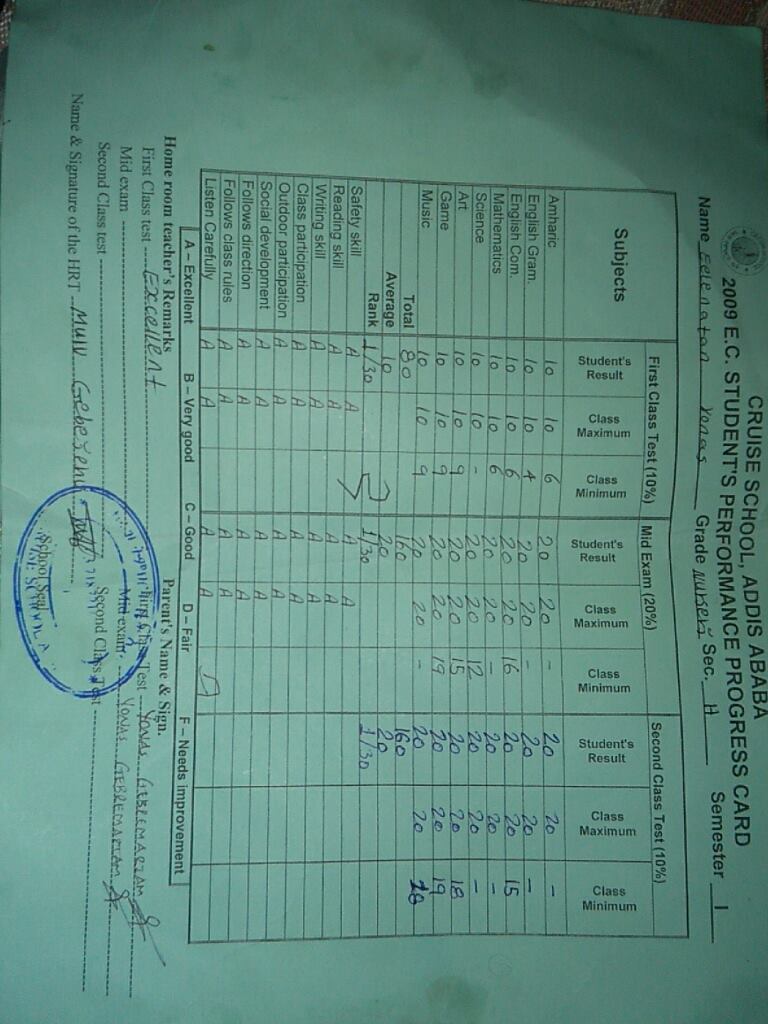 CRUISE SCHOOL, ADDIS ABABA
2009 E.C. STUDENT'S PERFORMANCE PROGRESS CARD
Name Eelenatan Yonas Grade Nursery Sec. H Semester I
Subjects First Class Test (10%) Mid Exam (20%) Second Class Test (10%)
Student's Result Class Maximum Class Minimum Student's Result Class Maximum Class Minimum Student's Result Class Maximum Class Minimum
Amharic 10 10 6 20 20 - 20 20 -
English Gram. 10 10 4 20 20 - 20 20 -
English Com. 10 10 6 20 20 16 20 20 15
Mathematics 10 10 6 20 20 - 20 20 -
Science 10 10 - 20 20 12 20 20 -
Art 10 10 9 20 20 15 20 20 18
Game 10 10 9 20 20 19 20 20 19
Music 10 10 9 20 20 - 20 20 18
Total 80 160 160
Average 10 20 20
Rank 1/30 1/30 1/30
Safety skill A A A A
Reading skill A A A A
Writing skill A A A A
Class participation A A A A
Outdoor participation A A A A
Social development A A A A
Follows direction A A A A
Follows class rules A A A A
Listen Carefully A A A A
A – Excellent B – Very good C – Good D – Fair F – Needs improvement
Home room teacher's Remarks Parent's Name & Sign.
First Class test Excellent First Class Test - YONAS GEBREMARIAM
Mid exam Mid exam - YONAS GEBREMARIAM
Second Class test Second Class Test
Name & Signature of the HRT Mulu
School Seal
CRUISE SCHOOL A